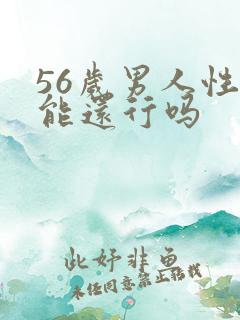 56歲男人性
能還行吗
此妤非鱼
未经同意禁止转载